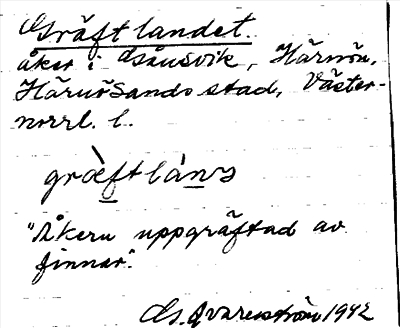 Gräftlandet.
åker i Gånsvik, Härnön,
Härnösands stad, Väster-
norrl. l.
græ̀ftlán̲s
"Åkern uppgräftad av
finnar".
Qvarnström 1942